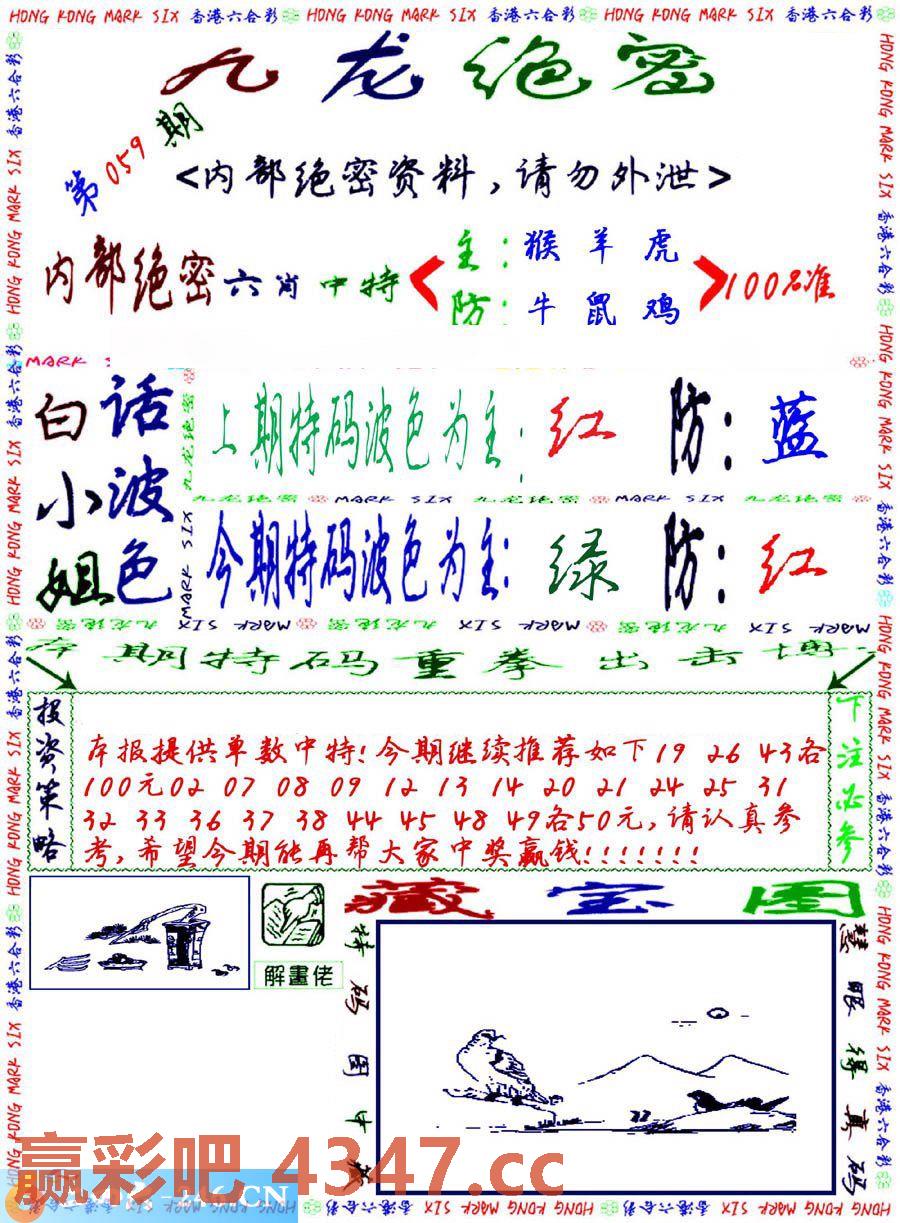 HONG KONG MARK SIX 香港六合彩 HONG KONG MARK SIX 香港六合彩 HONG KONG MARK SIX 香港六合彩
九龙绝密
第059期
<内部绝密资料,请勿外泄>
内部绝密六肖中特
主:猴羊虎
防:牛鼠鸡
100%准
MARK SIX
白话小波姐色
上期特码波色为主:红 防:蓝
九龙绝密 MARK SIX 九龙绝密 MARK SIX 九龙绝密
今期特码波色为主:绿 防:红
九龙绝密 MARK SIX 九龙绝密 MARK SIX 九龙绝密 MARK SIX
本期特码重拳出击博
投资策略
本报提供单数中特!今期继续推荐如下19 26 43各
100元02 07 08 09 12 13 14 20 21 24 25 31
32 33 36 37 38 44 45 48 49各50元,请认真参
考,希望今期能再帮大家中奖赢钱!!!!!!!
下注必参
藏宝图
解畫佬
特码图中
慧眼得真码
赢彩吧 4347.cc